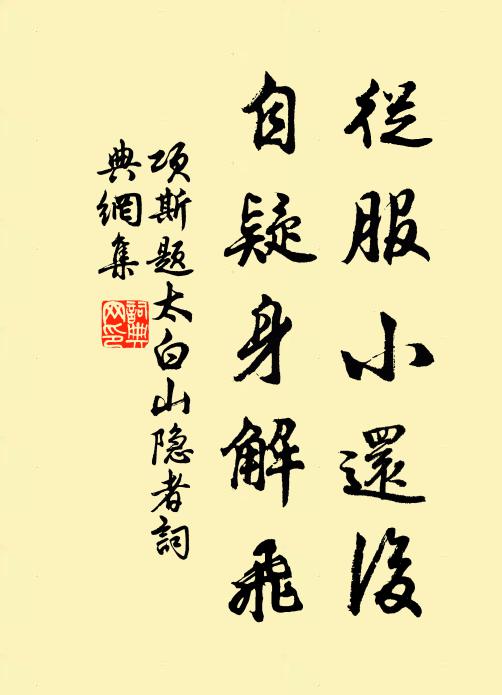 從服小還後
自疑身解飛
項斯題太白山隐者詞
典網集
詞典
网印